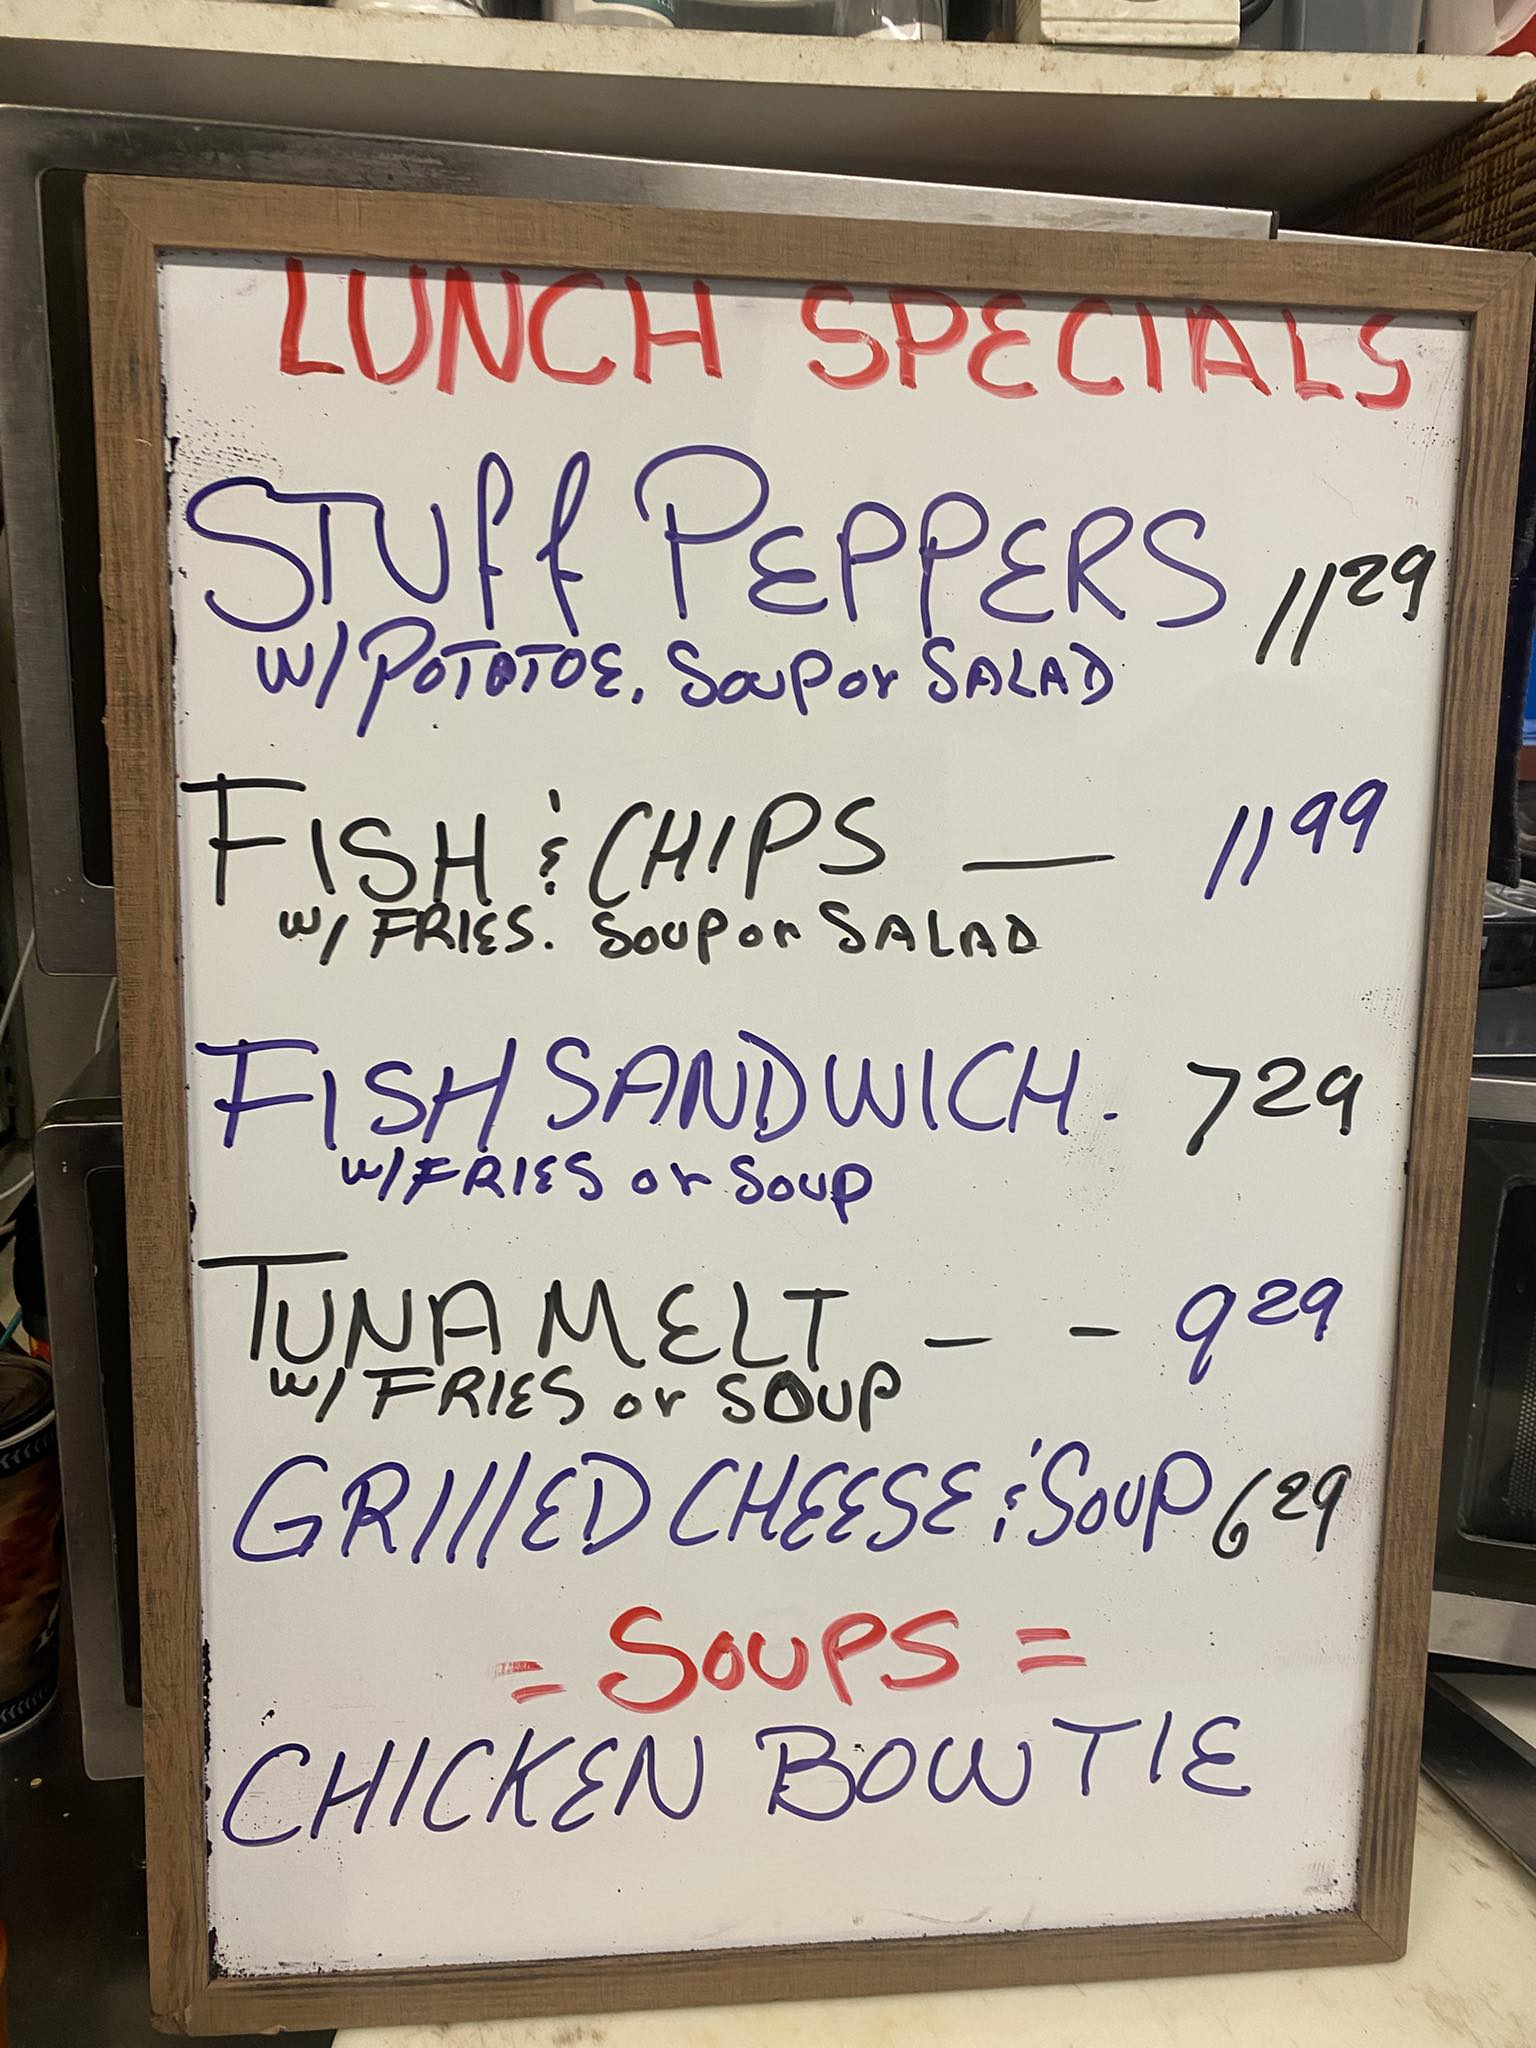 LUNCH SPECIALS
STUff PEPPERS 11 29
W/ POTATOE. SOUP or SALAD
FISH & CHIPS — 11 99
W/ FRIES. SOUP or SALAD
FISH SANDWICH. 7 29
W/ FRIES or SOUP
TUNA MELT - - 9 29
W/ FRIES or SOUP
GRIllED CHEESE & SOUP 6 29
= SOUPS =
CHICKEN BOWTIE